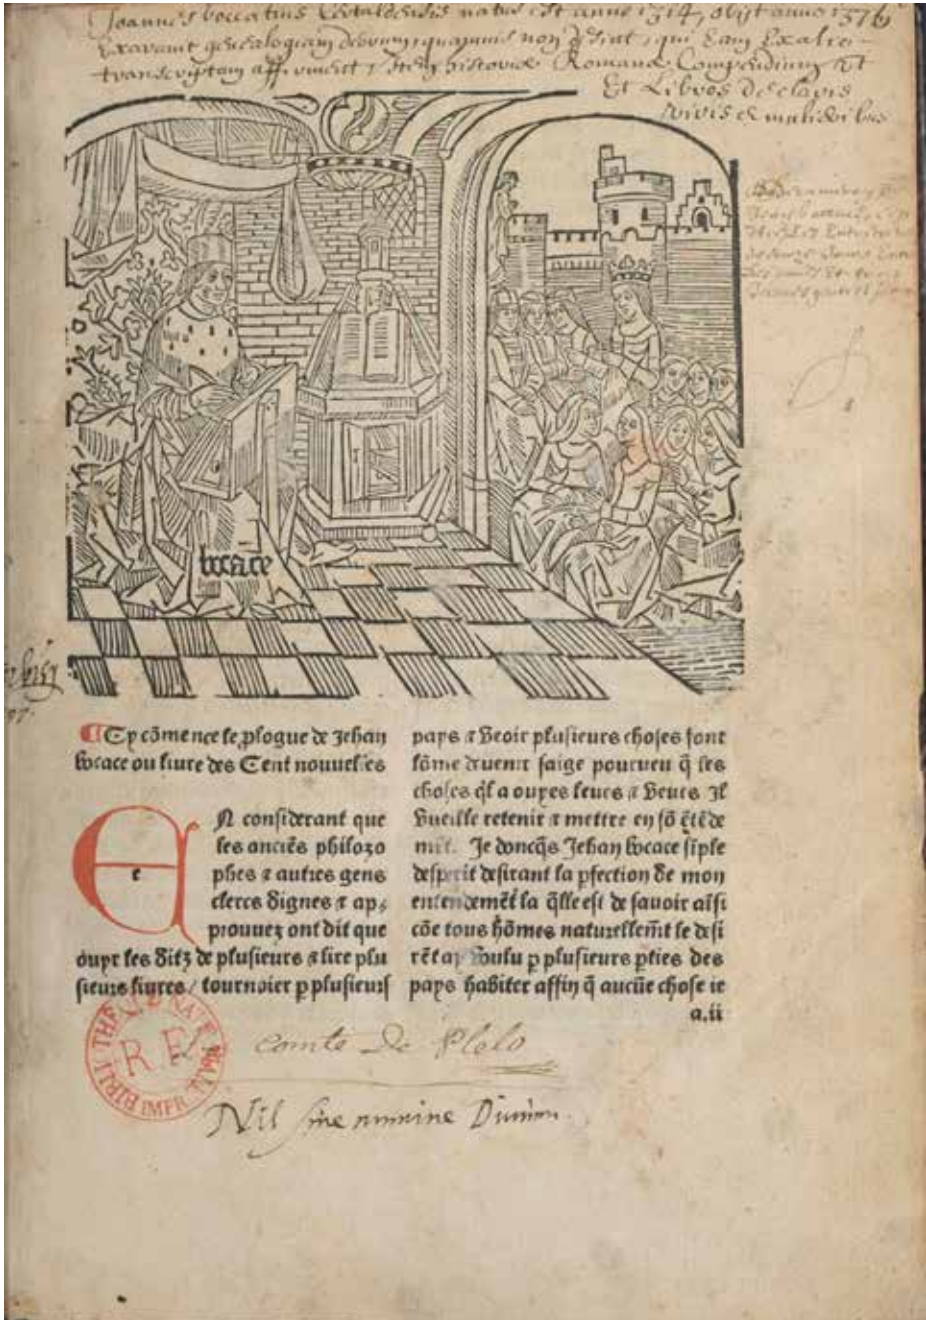 Joannes boccatius Certaldensis natus est anno 1314, obijt anno 1376
Exaravit genealogiam deorum, quamvis non desint, qui eam ex alio
transcriptam affirment, Item historiæ Romanæ Compendium
Et Libros De claris
viris et mulieribus
bocace
¶ Cy cõmence le ꝓlogue de Jehan
bocace ou liure des Cent nouuelles
e
EN considerant que
les anciẽs philozo
phes ⁊ autres gens
clercs dignes ⁊ ap⸗
prouuez ont dit que
ouyr les ditz de plusieurs ⁊ lire plu
sieurs liures / tournoier ꝑ plusieurs
pays ⁊ veoir plusieurs choses font
lõme deuenir saige pourueu q̃ les
choses q̃l a ouyes leues ⁊ veues Il
vueille retenir ⁊ mettre en sõ ẽtẽde
mẽt. Je doncq̃s Jehan bocace sĩple
desperit desirant la ꝑfection de mon
entendemẽt la q̃lle est de sauoir aĩsi
cõe tous hõmes naturellem̃t le desi
rẽt ay voulu ꝑ plusieurs ꝑties des
pays habiter affin q̃ aucũe chose ie
a.ii
R F
IMPR
comte De Plelo
Nil sine numine Divum.